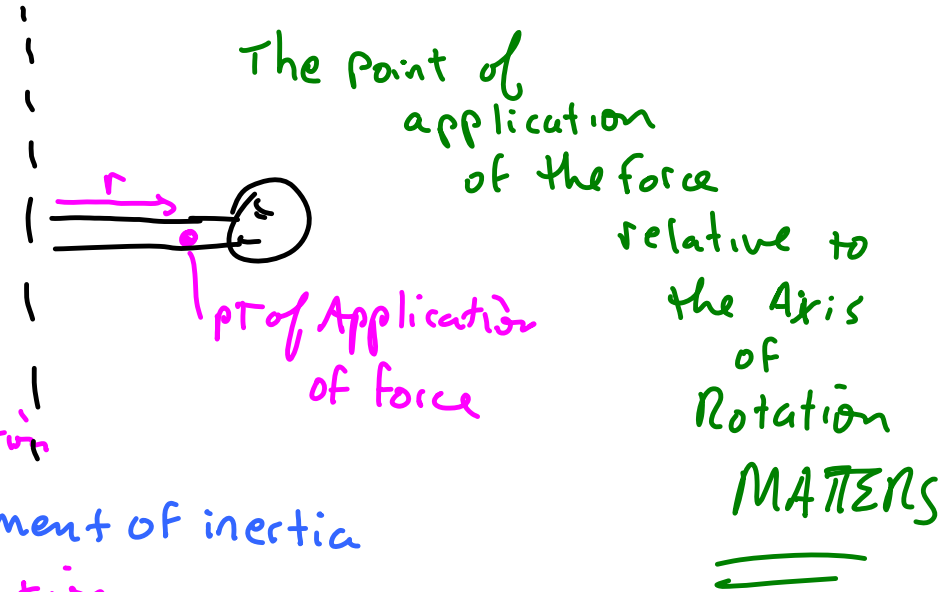 The point of
application
of the force
relative to
the Axis
of
Rotation
MATTERS
r
pT of Application
of force
of inertia